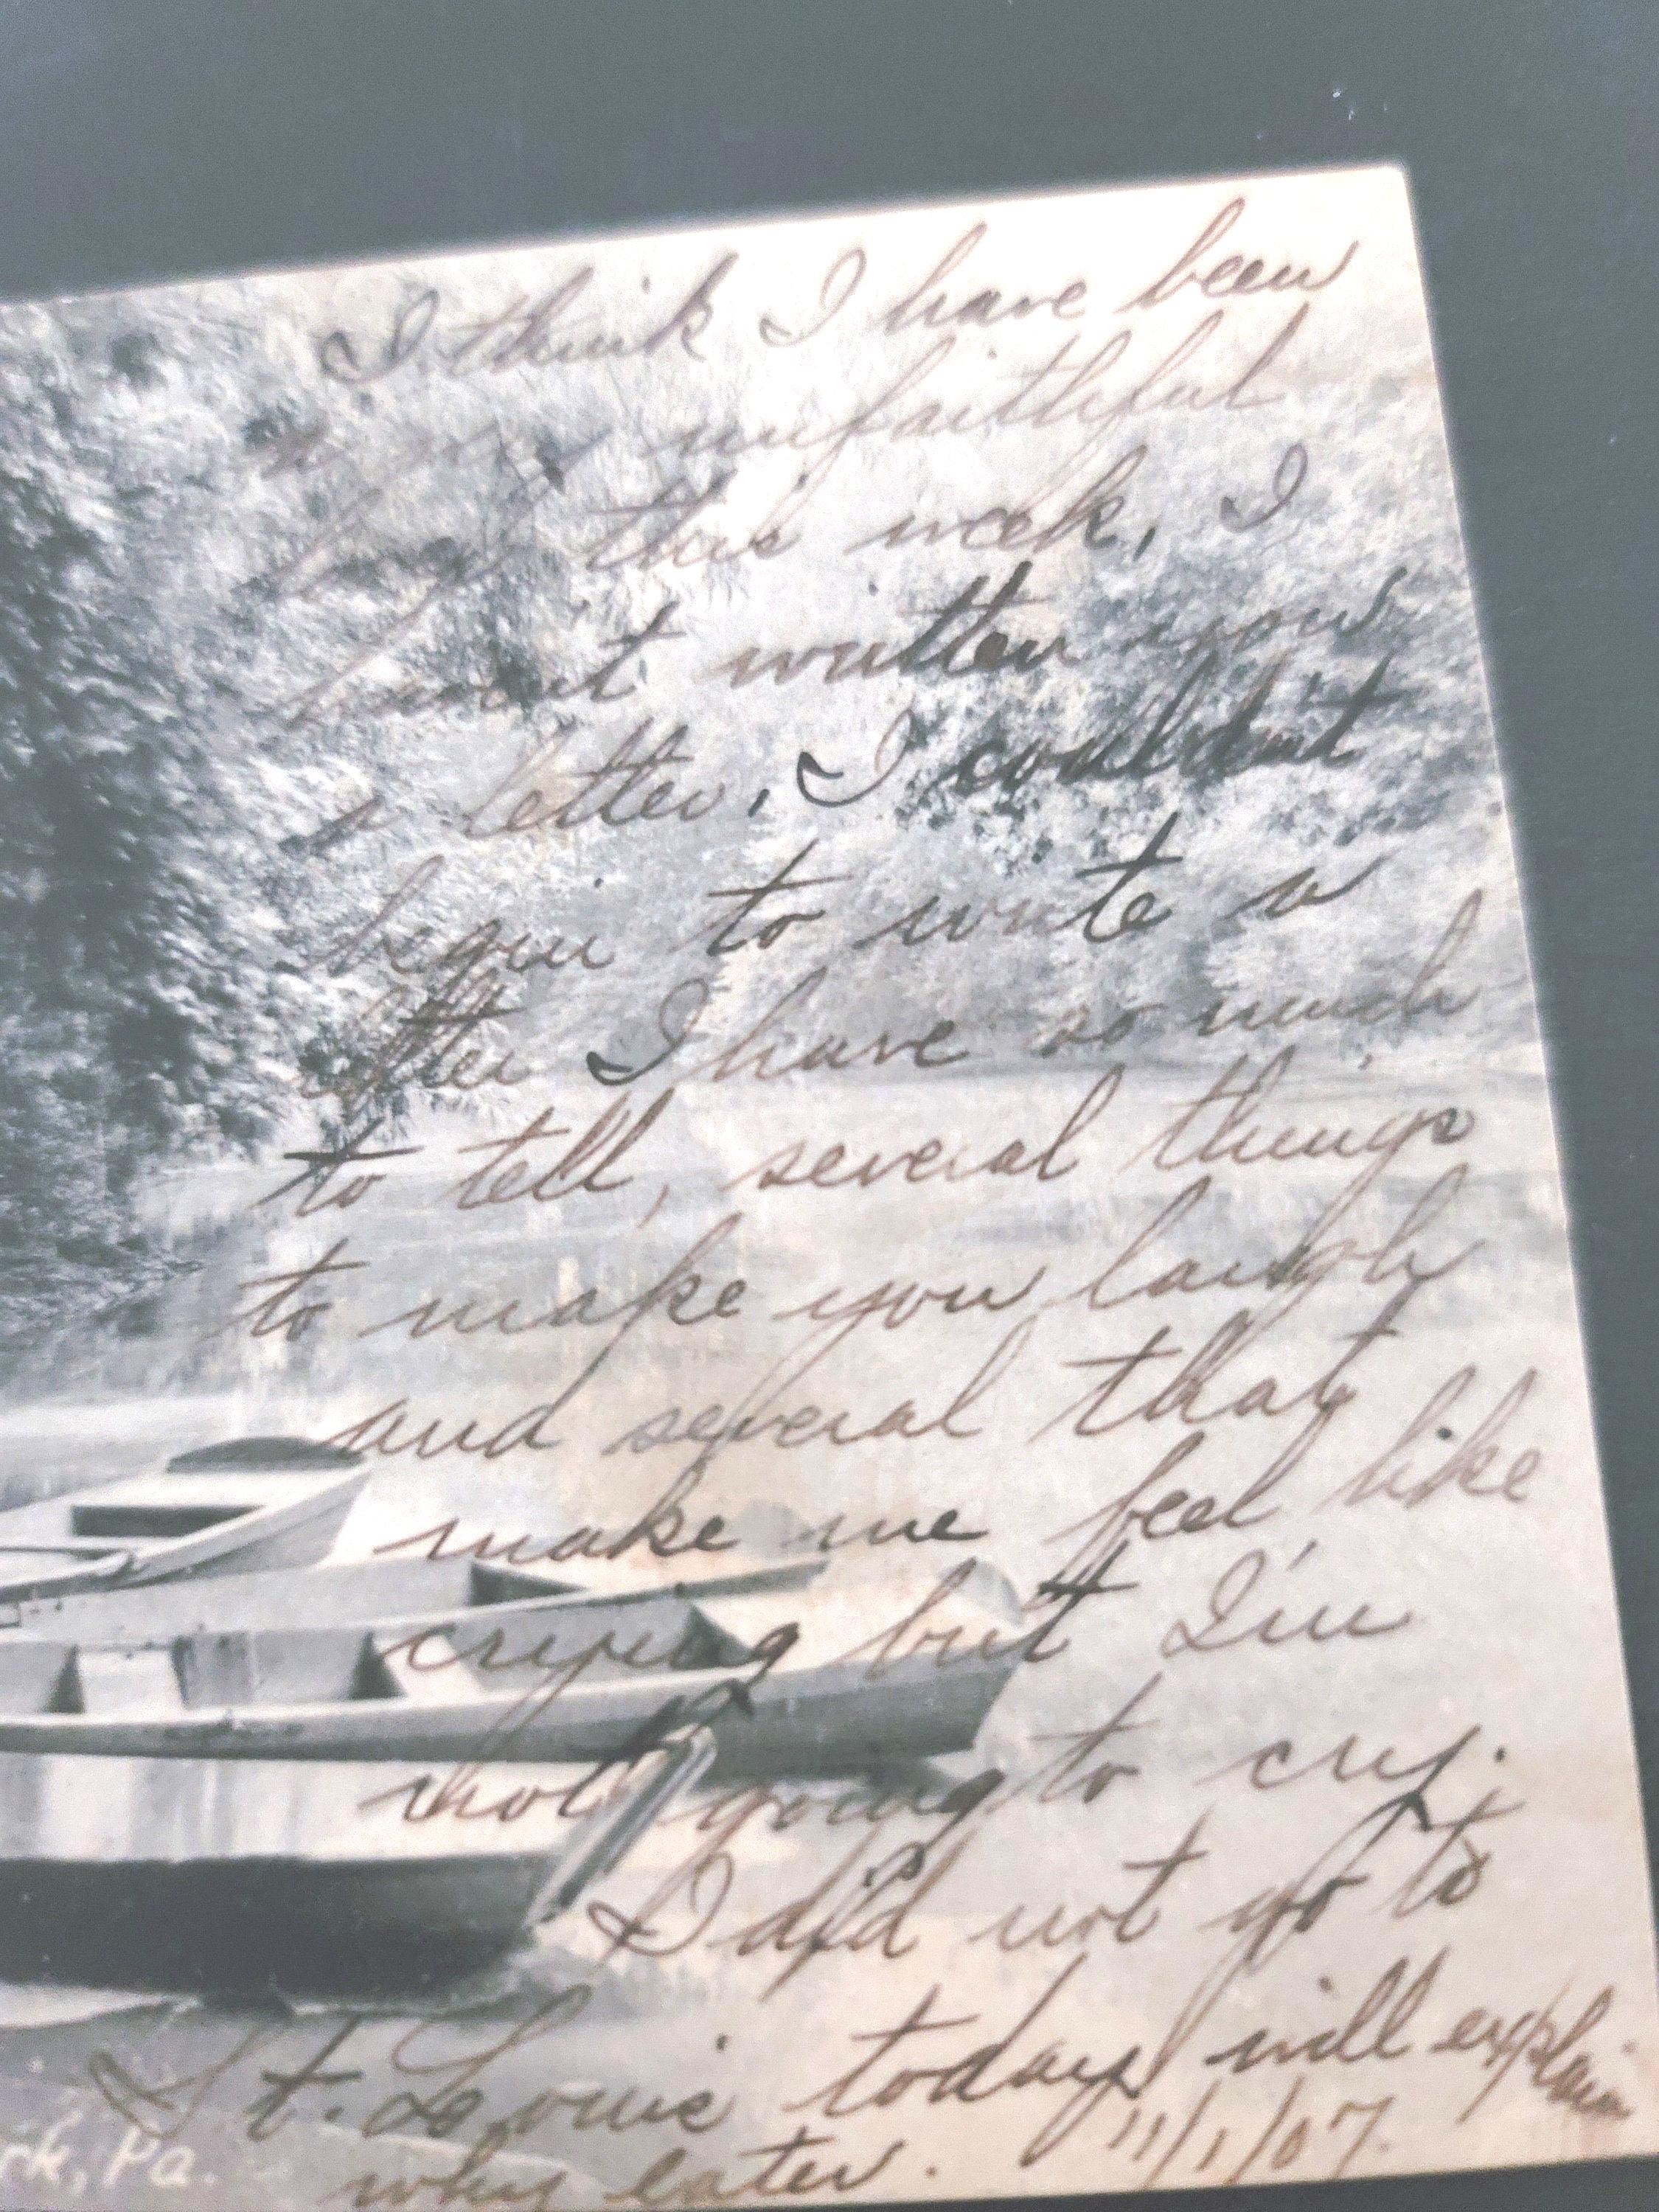 I think I have been
a very unfaithful
this week, I
havn't written you
a letter, I couldn't
begin to write a
letter I have so much
to tell, several things
to make you laugh
and several that
make me feel like
crying but I'm
not going to cry.
I did not go to
St. Louis today will explain
why later. 11/1/07.
rk, Pa.